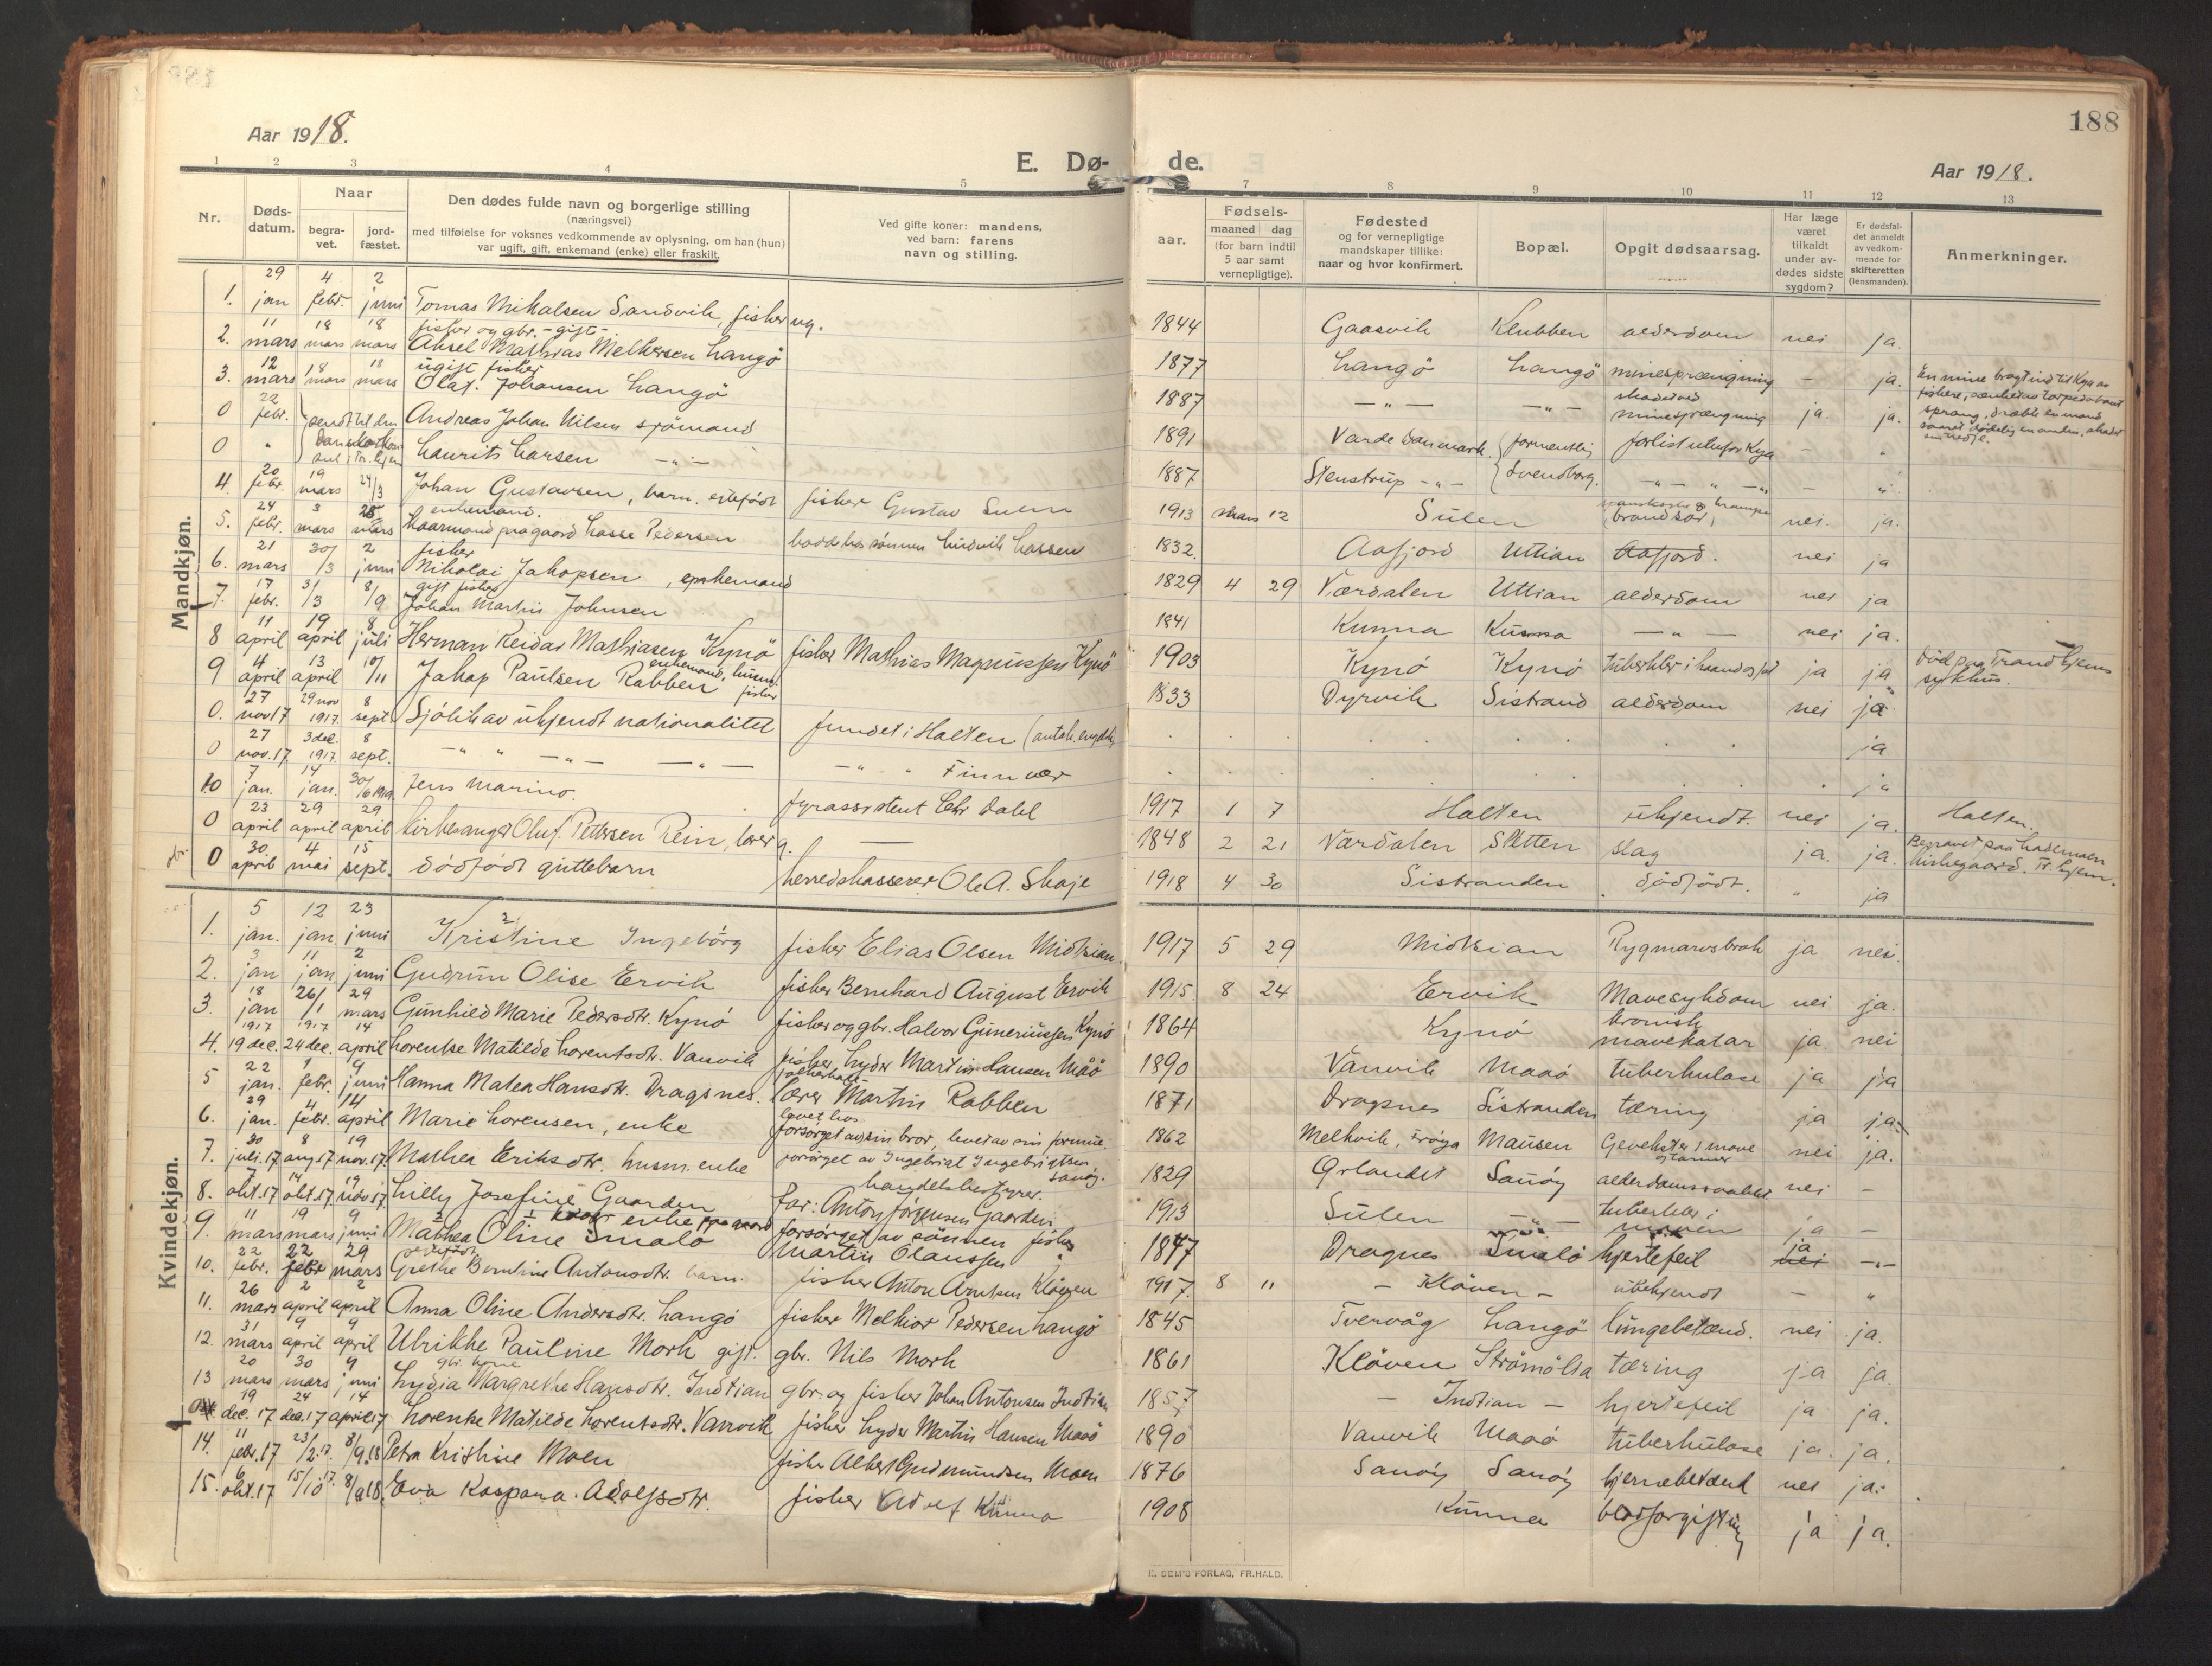 188
Aar 1918.
E. Dø-
de.
Aar 1918.
1 2 3 4 5 7 8 9 10 11 12 13
Nr.
Døds-
datum.
Naar
begra-
vet.
jord-
fæstet.
Den dødes fulde navn og borgerlige stilling
(næringsvei)
med tilføielse for voksnes vedkommende av oplysning, om han (hun)
var ugift, gift, enkemand (enke) eller fraskilt.
Ved gifte koner: mandens,
ved barn: farens
navn og stilling.
aar.
Fødsels-
maaned dag
(for barn indtil
5 aar samt
vernepligtige).
Fødested
og for vernepligtige
mandskaper tillike:
naar og hvor konfirmert.
Bopæl.
Opgit dødsaarsag.
Har læge
været
tilkaldt
under av-
dødes sidste
sygdom?
Er dødsfal-
det anmeldt
av vedkom-
mende for
skifteretten
(lensmanden).
Anmerkninger.
Mandkjøn.
1. 29 jan 4 febr. 2 juni Tomas Mikalsen Sandvik, fisker ug. 1844 Gaasvik Klubben alderdom nei ja.
2. 11 mars 18 mars 18 mars fisker og gbr. - gift - Aksel Mathias Melkersen Langö 1877 Langö Langö minesprængning - ja.
3. 12 mars 18 mars 18 mars ugift fisker Olaf Johansen Langö 1887 -"- -"- skadet ved minesprængning ja. ja.
0 22 febr. Andreas Johan Nilsen sjömand 1891 Varde Danmark formentlig forlist utenfor Kya - "
0 " Laurits Larsen -"- 1887 Stenstrup -"- Svendborg. -"- " -"- - "
4. 20 febr. 19 mars 24/3 Johan Gustavsen, barn, fisker Gustav Sulen 1913 mars 12 Sulen nei. ja.
5. 24 febr. 3 mars 25 mars enkemand. Kaarmand paa gaard Lasse Pedersen hadde hos sönnen Ludvik Lassen 1832. Aafjord Uttian Aafjord. nei ja
6. 21 mars 30/3 2 juni fisker Nikolai Jakopsen, enkemand 1829 4 29 Værdalen Uttian alderdom nei ja
7. 17 febr. 31/3 8/9 gift fisker Johan Martin Johnsen 1841 Kunna Kunna -"- nei ja.
8 11 april 19 april 8 juli Herman Reidar Mathiasen Kynö fisker Mathias Magnussen Kynö 1903 Kynö Kynö ja ja Död paa Trondhjems sykhus.
9 4 april 13 april 10/11 Jakop Paulsen Rabben enkemand, fisker 1833 Dyrvik Sistrand alderdom nei ja
0. 27 nov 17 29 nov 1917. 8 sept. Sjölik av ukjendt nationalitet fundet i Halten ja
0 27 nov. 17 3 dec. 1917. 8 sept. -"- " -"- -"- -"- " Finnvær ja
10 7 jan. 14 jan. 30/6 1919. Jens Marino. fyrassistent Chr Dahl 1917 1 7 Halten ukjendt. nei ja. Halten.
0 23 april 29 april 29 april Kirkesanger Oluf Pettersen Rein, lærer g. — 1848 2 21 Værdalen Sletten slag ja. ja. Begravet paa Lademoen kirkegaard. Tr.hjem.
0 30 april 4 mai 15 sept. dödfödt guttebarn herredskasserer Ole A. Skaje 1918 4 30 Sistranden dödfödt. " ja
Kvindekjøn.
1. 5 jan. 12 jan 23 juni Kristine Ingebörg fisker Elias Olsen Midtsian. 1917 5 29 Midtsian Rygmarvsbrok ja nei.
2. 3 jan 11 jan 2 juni Gudrun Olise Ervik fisker Bernhard August Ervik 1915 8 24 Ervik Mavesykdom nei ja.
3. 18 jan 26/1 29 mars Gunhild Marie Pedersdtr. Kynö fisker og gbr. Halvor Guneriussen Kynö 1864 Kynö kronisk mavekatar ja nei
4. 1917 19 dec. 1917 24 dec. 14 april Lorentse Matilde Lorentsdtr. Vanvik fisker Lyder Martin Hansen Måö 1890 Vanvik Maaö tuberkulose ja ja
5 22 jan. 1 febr. 9 juni Hanna Matea Hansdtr. Dragsnes. lærer Martin Rabben 1871 Dragsnes Sistranden tæring ja ja.
6. 29 jan. 4 febr. 14 april Marie Lorensen, enke levet hos forsörget av sin bror, levet av sin formue. 1862 Melkvik, Fröya Mausen nei ja.
7. 30 juli. 17 8 aug 17 19 nov. 17. Mathea Eriksdtr. husm. enke forsörget av Ingebrigt Ingebrigtsen Sanöy. 1829 Örlandet Sanöy alderdomssvakhet nei -
8. 7 okt. 17 14 okt. 17 19 nov 17 Lilly Josefine Gaarden handelsbestyrer. far: Anton Jörgensen Gaarden 1913 Sulen -"- tuberkler i ja -
9. 11 mars 19 mars 9 juni Mathea Oline Smalö enke forsörget av sönnen fisker Martin Olaussen 1847 Dragnes Smalö hjertefeil nei ja -"-
10. 22 febr. 22 febr 29 mars Grethe Berntine Antonsdtr. barn. fisker Anton Arntsen Klöven 1917. 8 11 - Klöven - ubekjendt - "
11. 26 mars 2 april 2 april Anna Oline Andersdtr. Langö fisker Melkior Pedersen Langö 1845 Tvervåg Langö lungebetænd. nei ja.
12. 31 mars 9 april 9 april Ulrikke Pauline Mork gift. gbr. Nils Mork 1861 Klöven Strömölsa tæring ja ja.
13 20 mars 30 mars 9 juni gbr. kone Lydia Margrethe Hansdtr. Indtian gbr. og fisker Johan Antonsen Indtian 1857 - Indtian - hjertefeil ja ja.
19 dec. 17 24 dec. 17 14 april 17 Lorentse Matilde Lorentsdtr. Vanvik fisker Lyder Martin Hansen Maaö 1890 Vanvik Maaö tuberkulose ja. ja.
14. 11 febr. 17 23/2. 17. 8/9.18 Petra Kristine Moen fisker Albert Gudmundsen Moen 1876 Sanöy Sanöy hjernebetænd nei ja.
15. 6 okt. 17 15/10 17. 8/9 18. Eva Kaspara Adolfsdtr. fisker Adolf Kunna 1908 Kunna blodforgiftning ja ja.
E. SEM'S FORLAG, FR.HALD.